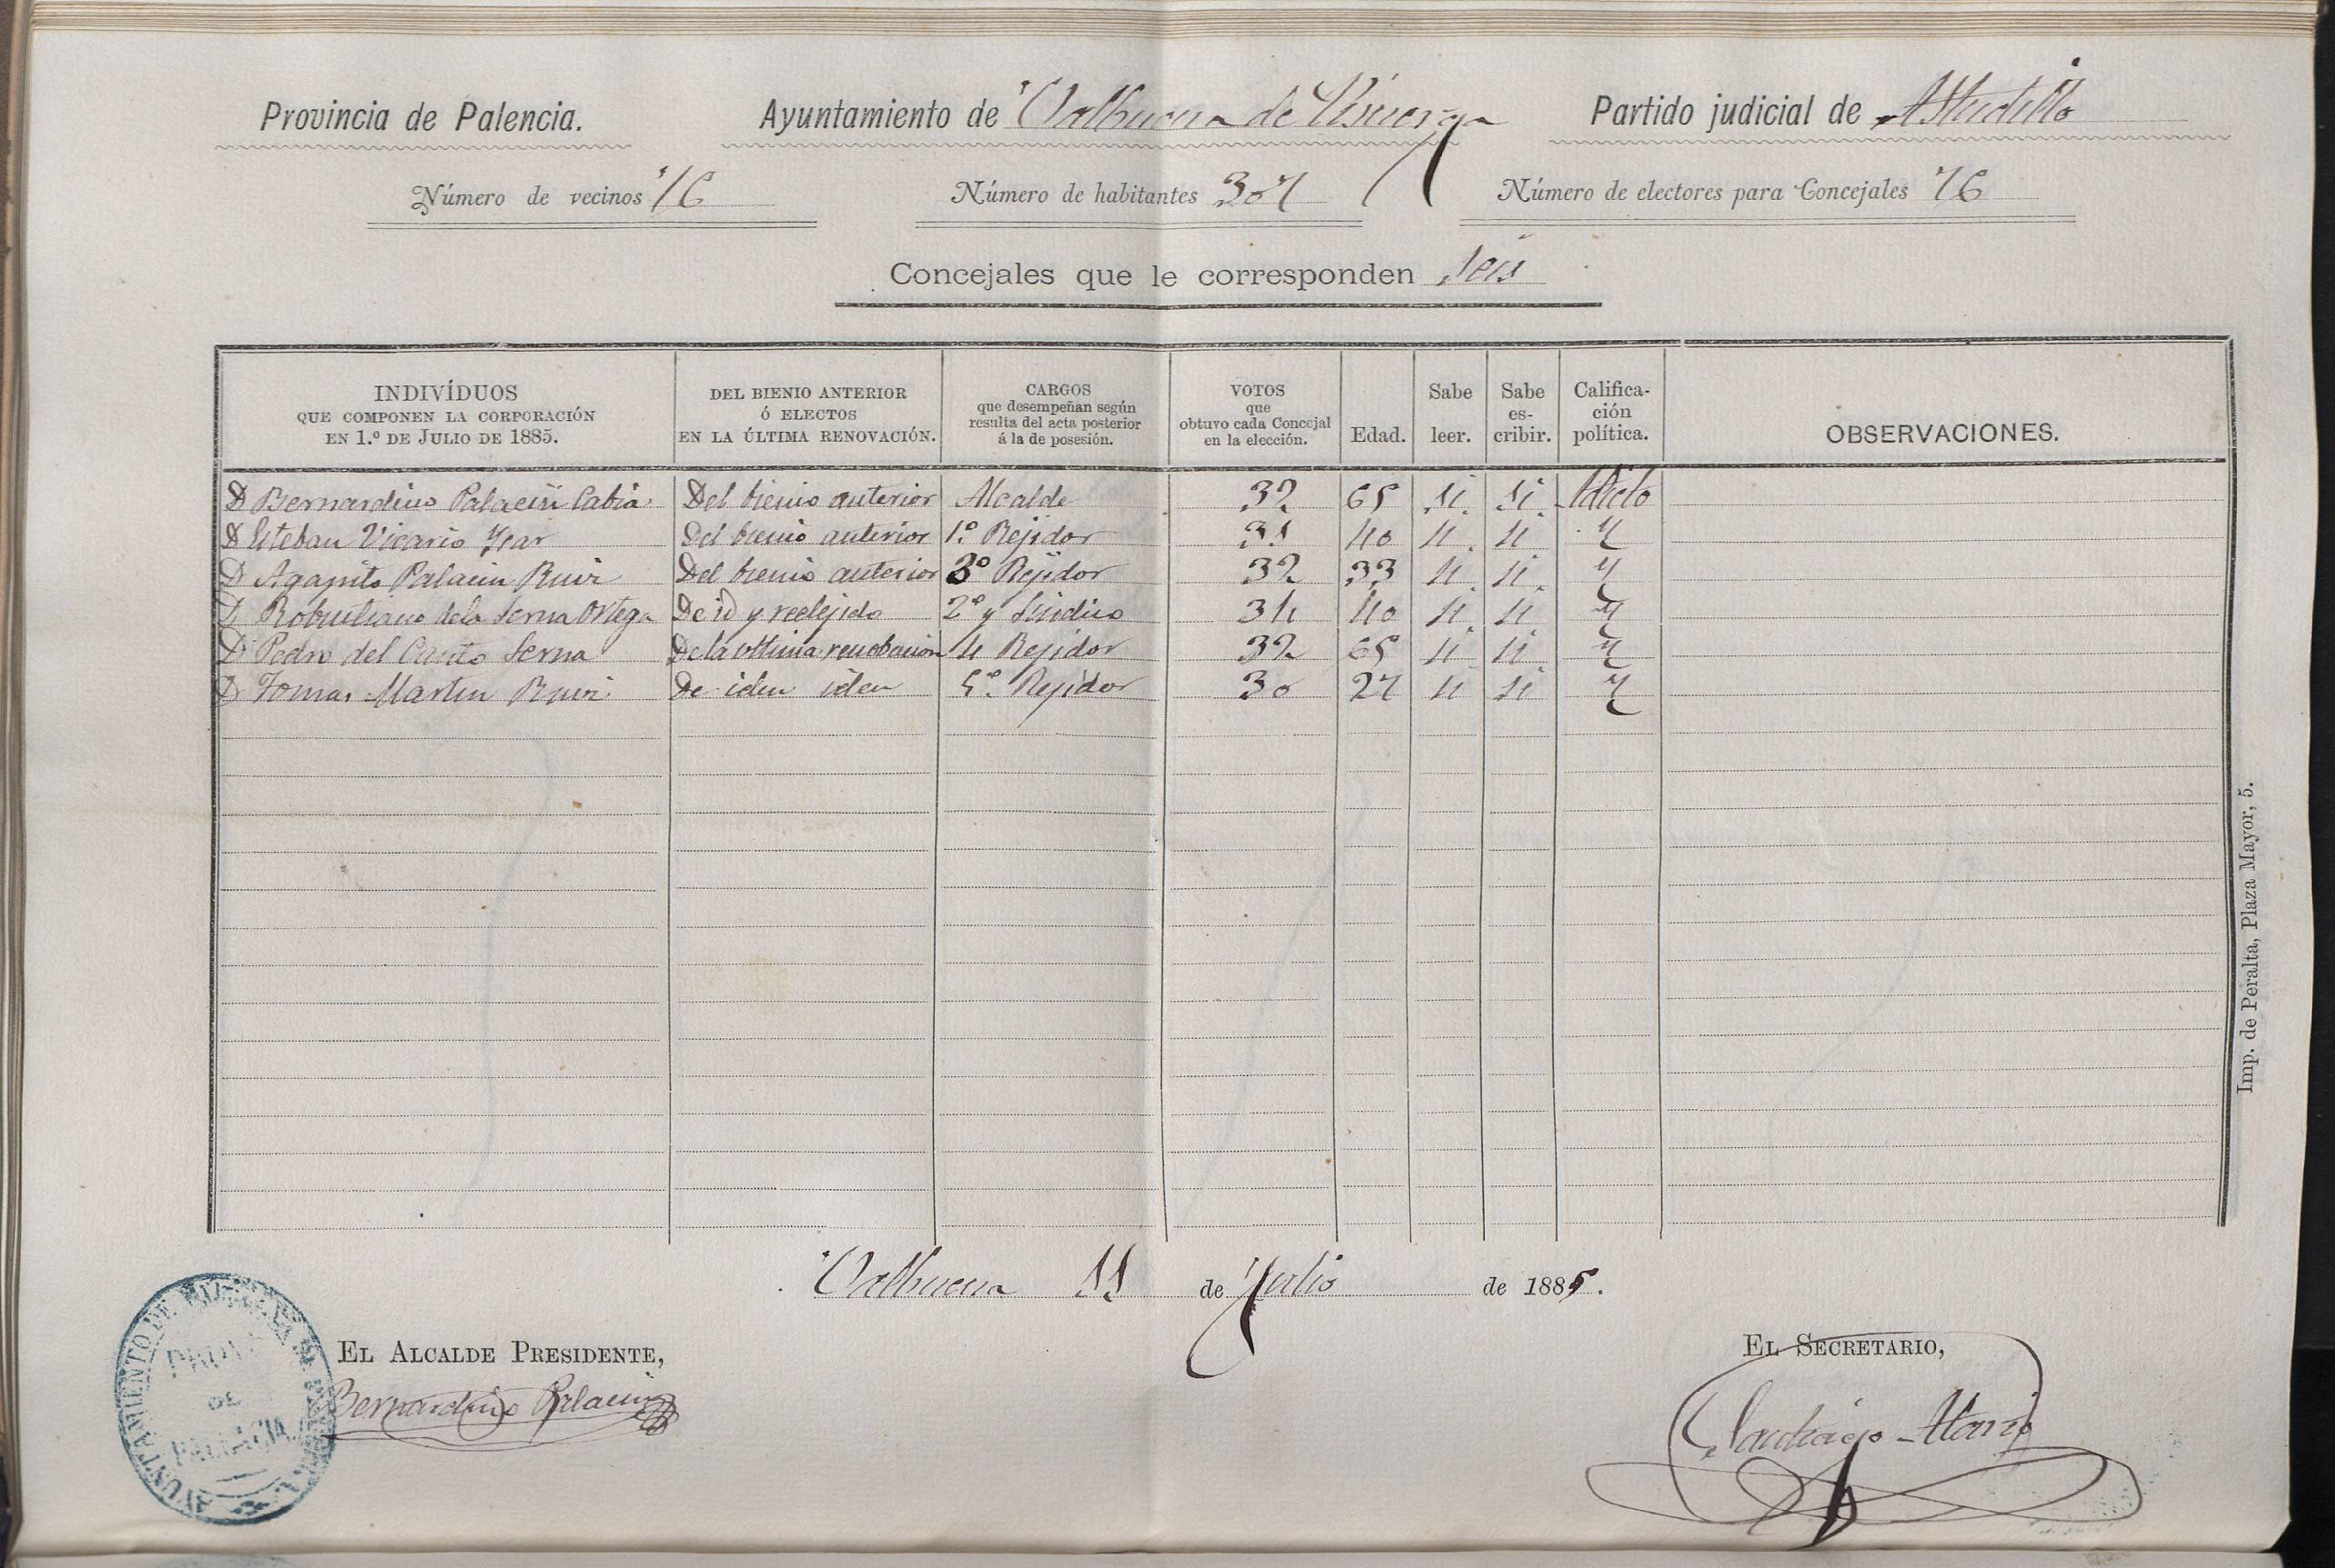 Provincia de Palencia. Ayuntamiento de Valbuena de Pisuerga Partido judicial de Astudillo
Número de vecinos 76 Número de habitantes 307 Número de electores para Concejales 76
Concejales que le corresponden Seis
INDIVÍDUOS QUE COMPONEN LA CORPORACIÓN EN 1.º DE JULIO DE 1885. DEL BIENIO ANTERIOR Ó ELECTOS EN LA ÚLTIMA RENOVACIÓN. CARGOS que desempeñan según resulta del acta posterior á la de posesión. VOTOS que obtuvo cada Concejal en la elección. Edad. Sabe leer. Sabe es-cribir. Califica-ción política. OBSERVACIONES.
D Bernardino Palacin Cabia Del bienio anterior Alcalde 32 65 si. si. Adicto
D Esteban Vicario Del bienio anterior 1.º Rejidor 31 40 si. si y
D Agapito Palacin Ruiz Del bienio anterior 3º Rejidor 32 33 si. si. y
D Robustiano dela Serna Ortega De id y reelejido 2º y Sindico 34 40 si. si y
D Pedro del Canto Serna De la ultima renobacion 4 Rejidor 32 65 si si. y
D Tomas Martin Ruiz De iden iden 5.º Rejidor 30 27 si si y
Valbuena 11 de Julio de 1885.
EL ALCALDE PRESIDENTE, EL SECRETARIO,
Bernardino Palacin Santiago
AYUNTAMIENTO DE
PROVA
DE
PALENCIA
Imp. de Peralta, Plaza Mayor, 5.